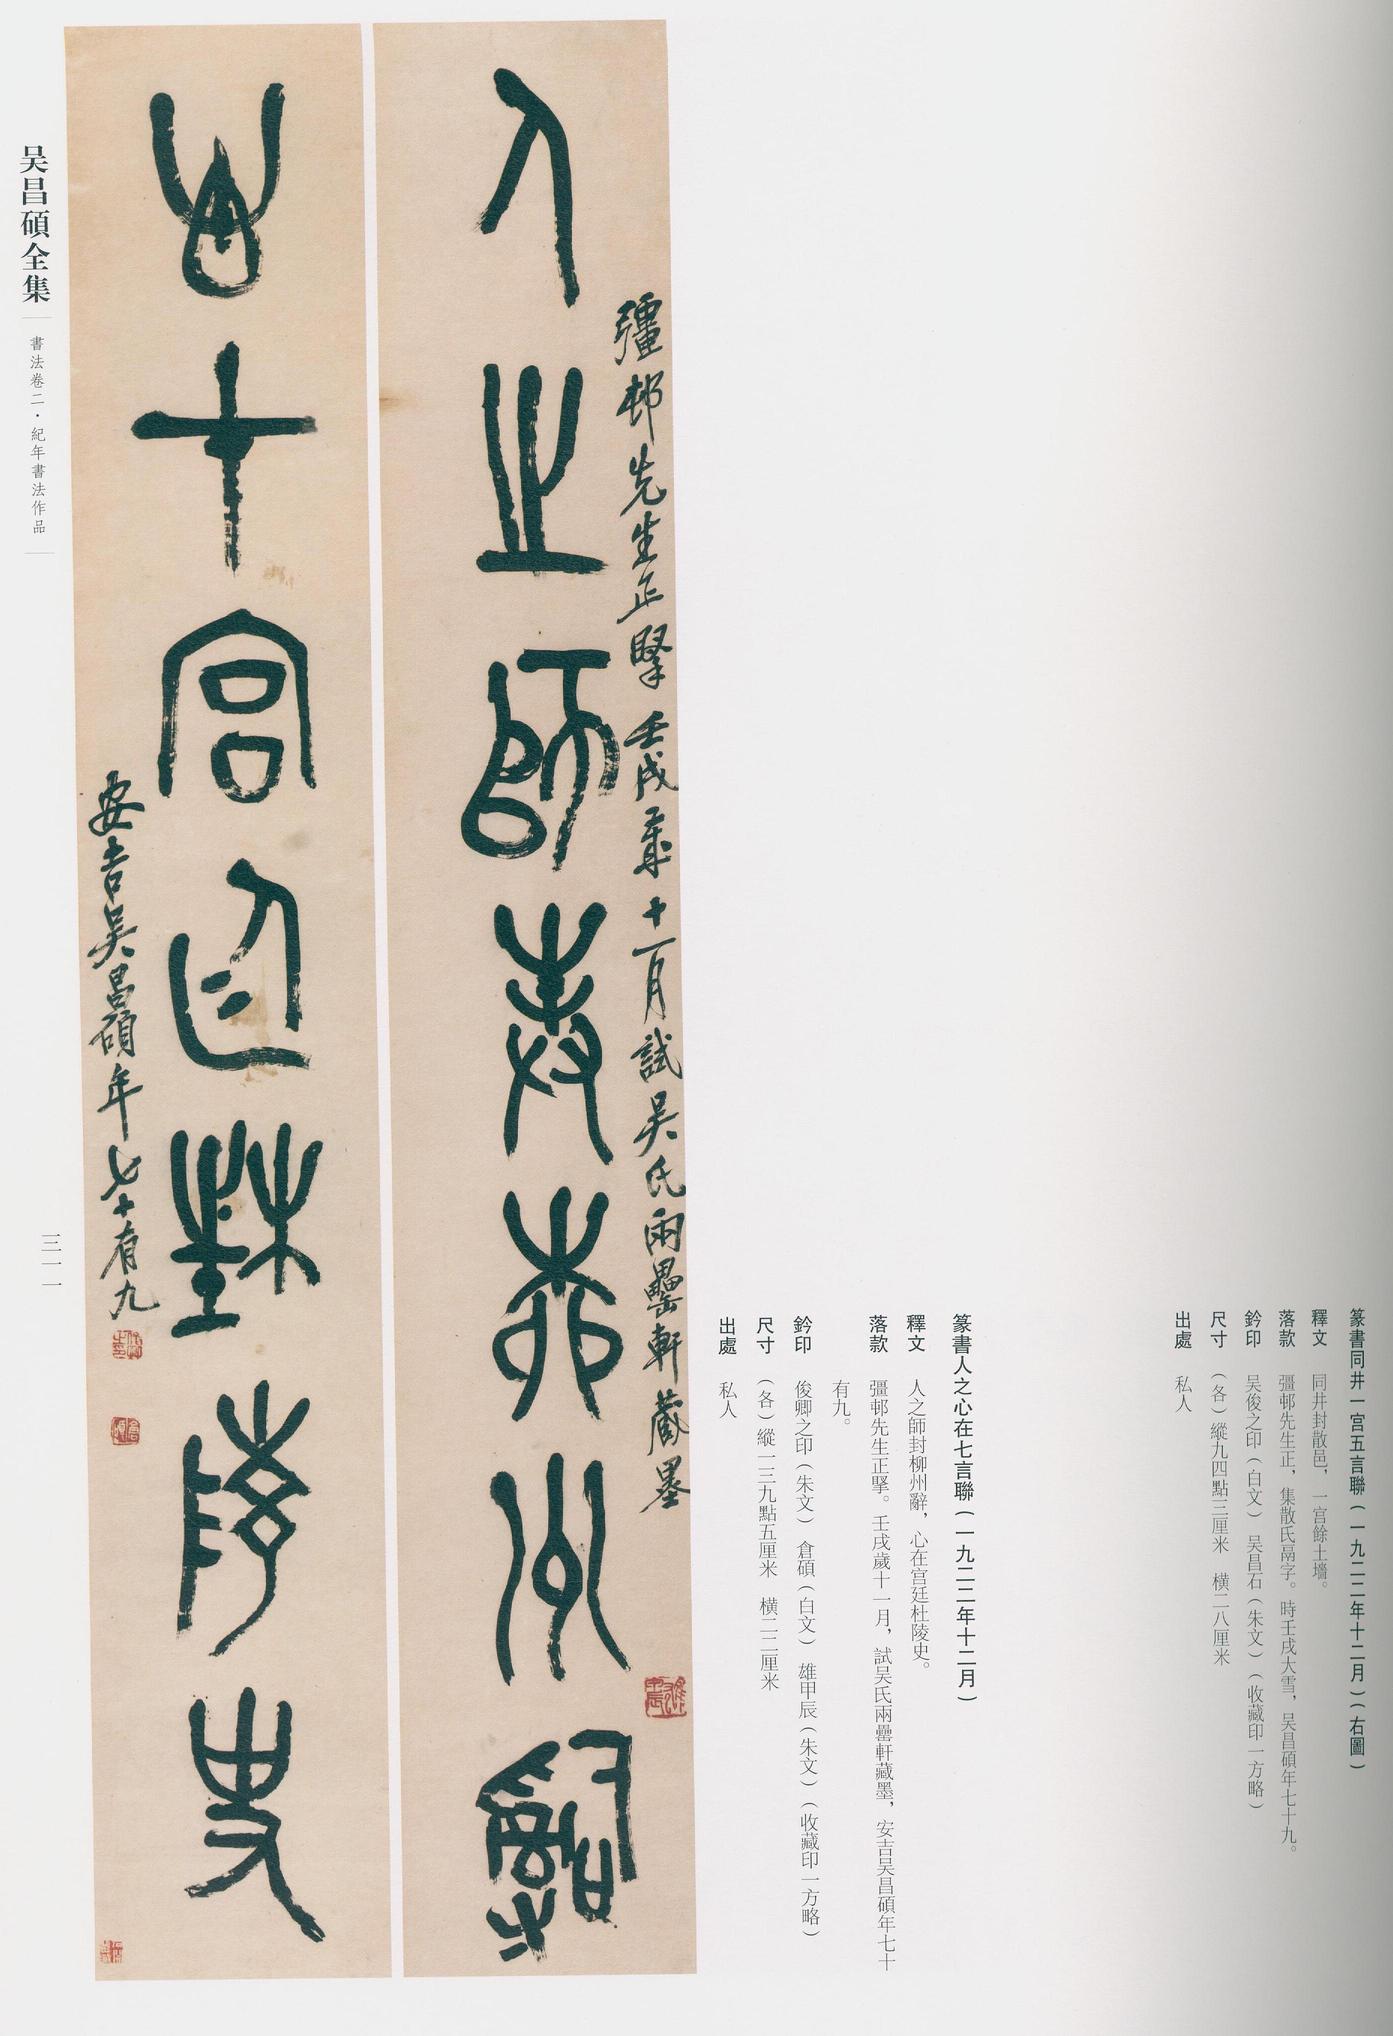 篆書同井一宮五言聯(一九二二年十二月)(右圖)
釋文 同井封散邑,一宮餘土墻。
落款 彊邨先生正,集散氏鬲字。時壬戌大雪,吴昌碩年七十九。
鈐印 吴俊之印(白文) 吴昌石(朱文)(收藏印一方略)
尺寸 (各)縱九四點三厘米 橫二八厘米
出處 私人
篆書人之心在七言聯(一九二二年十二月)
釋文 人之師封柳州辭,心在宮廷杜陵史。
落款 彊邨先生正擥。壬戌歲十一月,試吴氏兩罍軒藏墨,安吉吴昌碩年七十
有九。
鈐印 俊卿之印(朱文) 倉碩(白文) 雄甲辰(朱文)(收藏印一方略)
尺寸 (各)縱一三九點五厘米 橫二二厘米
出處 私人
彊邨先生正擥壬戌歲十一月試吴氏兩罍軒藏墨
人之師封柳州辭
心在宮廷杜陵史
安吉吴昌碩年七十有九
吴昌碩全集
書法卷二·紀年書法作品
三一一